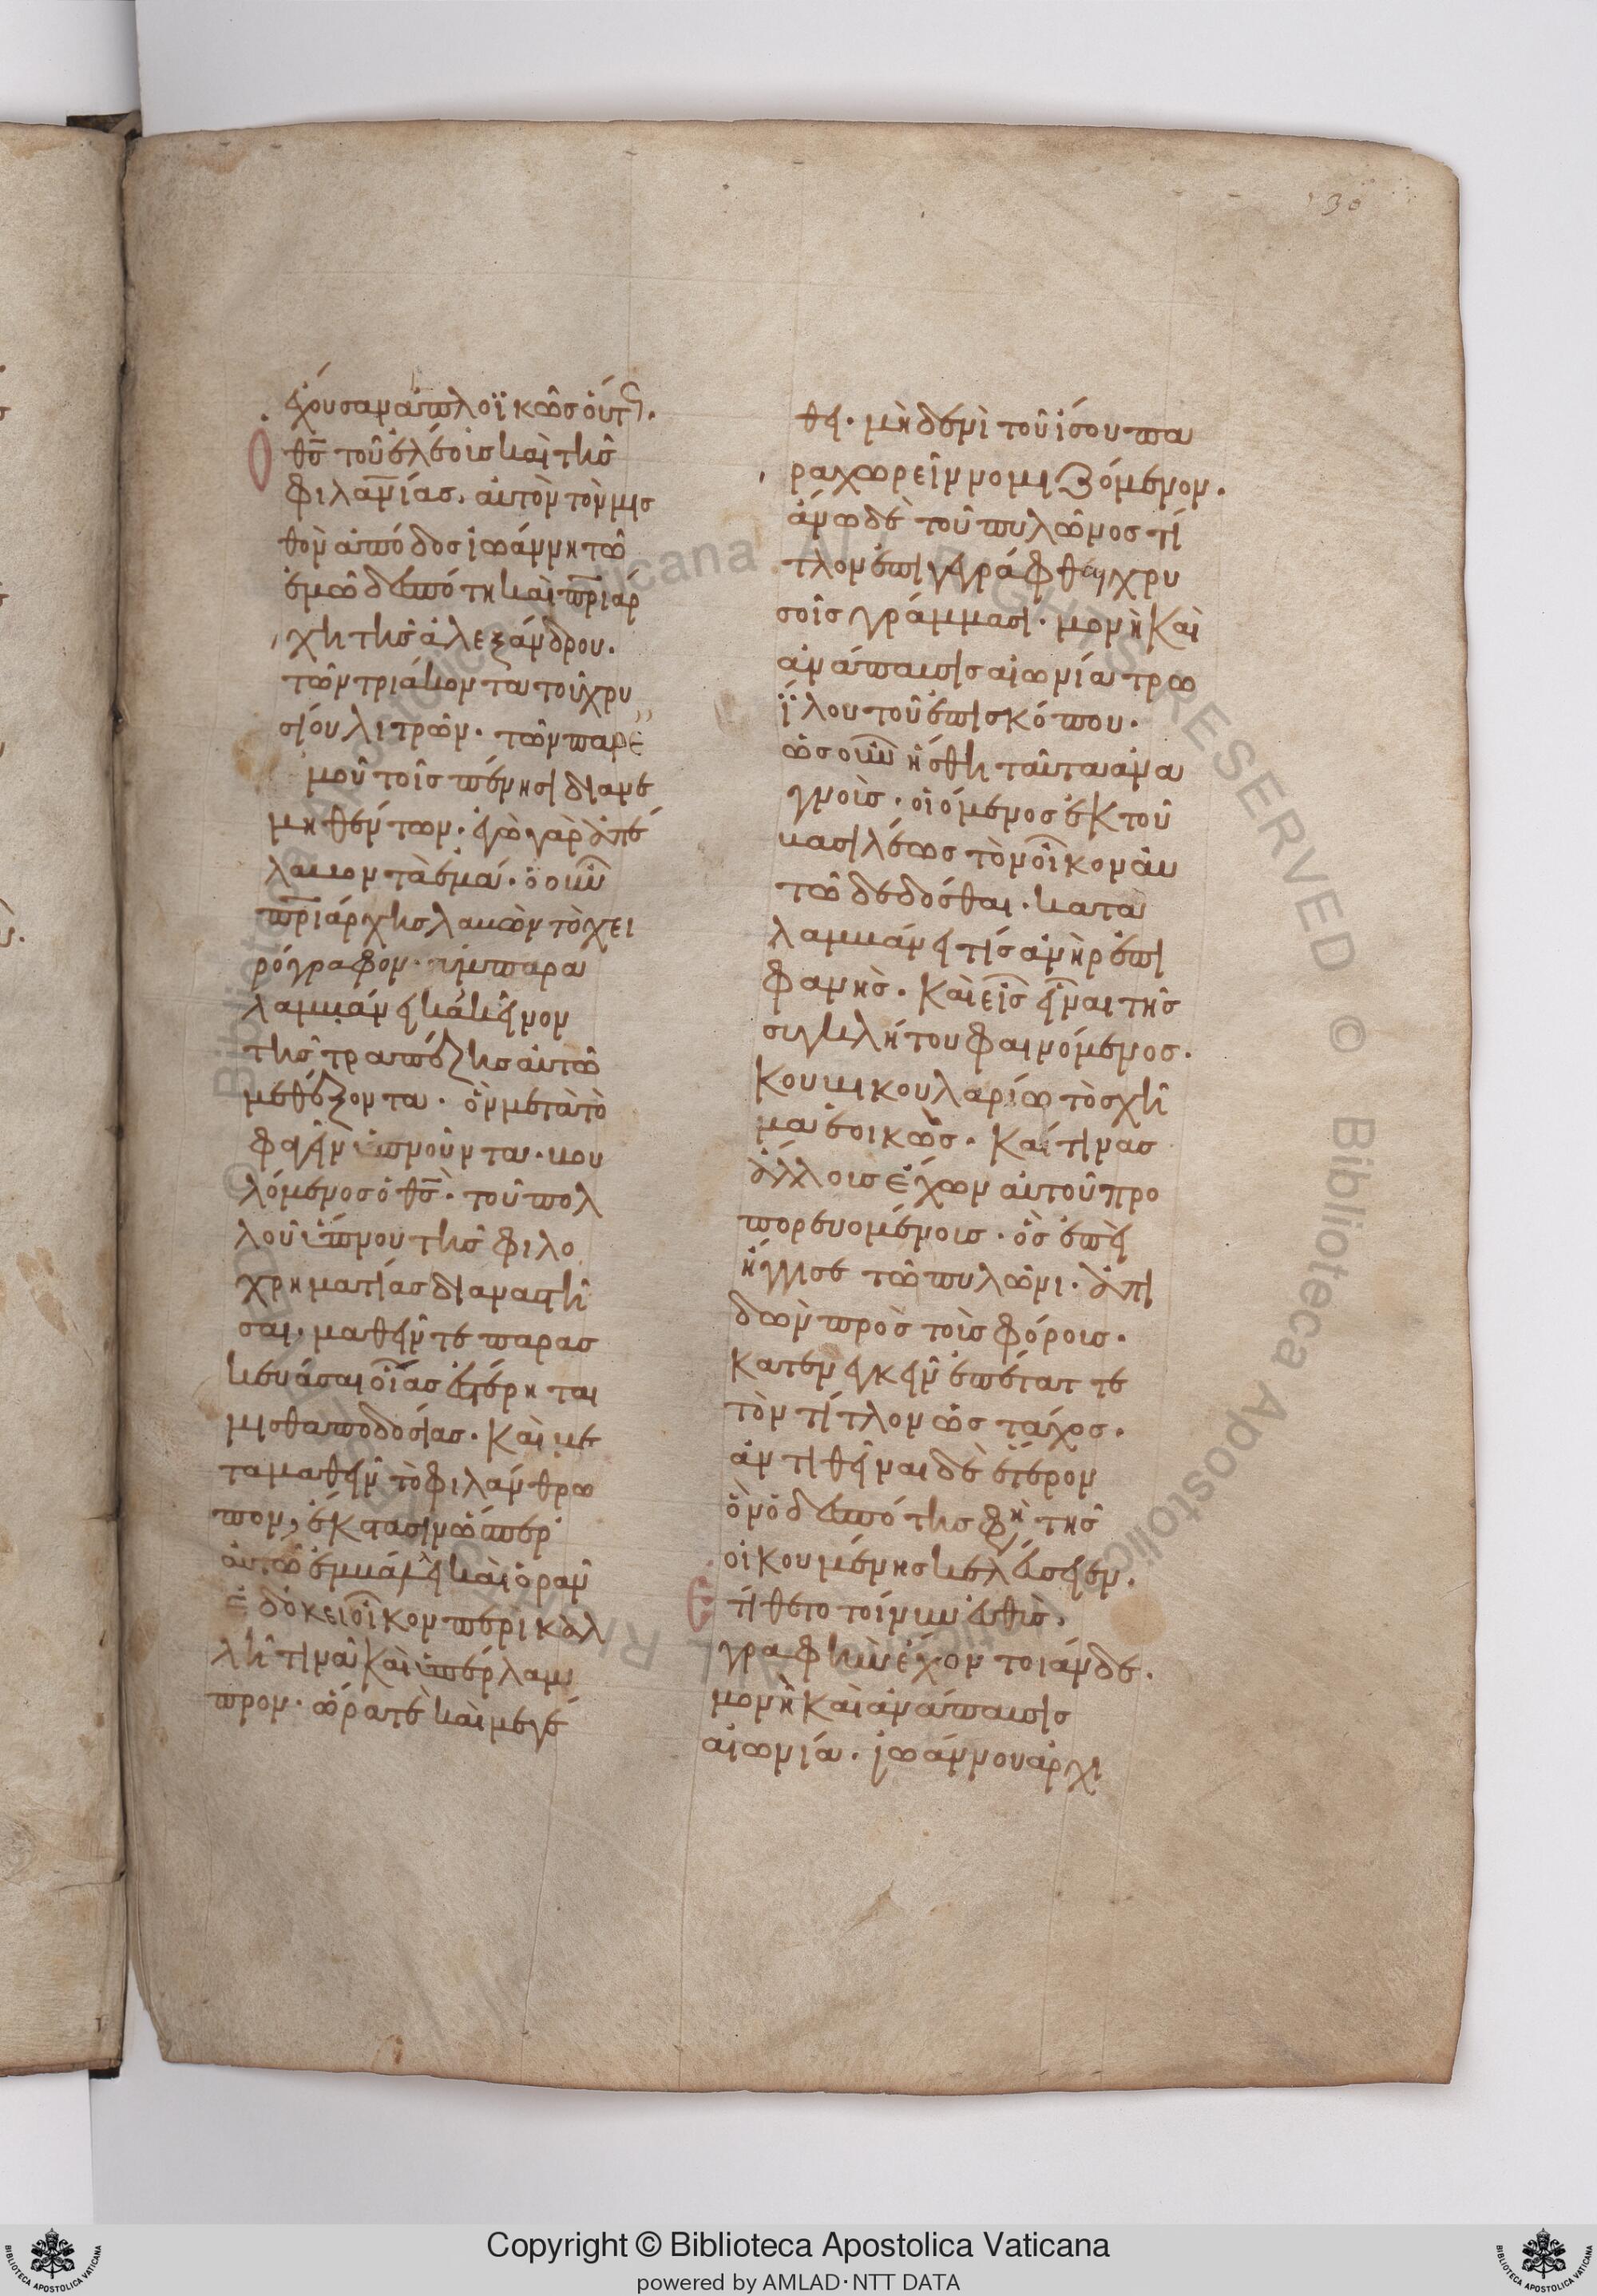 30
ἔχουσαν ἁπλοϊκῶς οὕτς.
Ὁ θς τοῦ ἐλέους καὶ τῆς
φιλανίας. αὐτὸν τὸν μισ
θὸν ἀπόδος ἰωάννη τῶ
ἐμῶ δεσπότη καὶ πριάρ
χη τῆς ἀλεξάνδρου.
τῶν τριάκοντα τοῦ χρυ
σίου λιτρῶν. τῶν παρ ἐ
μοῦ τοῖς πένησι διανε
μηθέντων. ἐγὼ γὰρ ἀπέ
λαβον τὰ ἐμά. ὁ οὖν
πριάρχης λαβὼν τὸ χει
ρόγραφον.
λαμβάνει κἀκεῖνον
τῆς τραπέζης αὐτῶ
μεθέξοντα. ὃν μετὰ τὸ
φαγεῖν ὑπνοῦντα. βου
λόμενος ὁ θς. τοῦ πολ
λοῦ ὕπνου τῆς φιλο
χρηματίας διαναστῆ
σαι. μαθεῖν τε παρασ
κευάσαι οἵας ἐστέρηται
μισθαποδοσίας. καὶ με
ταμαθεῖν τὸ φιλάνθρω
πον, ἐκστασιν ὥσπερ
αὐτῶ ἐμβάλλει καὶ ὁρᾶν
ἐδόκει οἶκον περικαλ
λῆ τινα καὶ ὑπέρλαμ
προν. ὡράτε καὶ μεγέ
θει. μηδενὶ τοῦ ἴσου πα
ραχωρεῖν νομιζόμενον.
ἄνω δὲ τοῦ πυλῶνος τί
τλον ἐπιγεγράφθαι χρυ
σοῖς γράμμασι. μονὴ καὶ
ἀνάπαυσις αἰωνία τρω
ΐλου τοῦ ἐπισκόπου.
ὡς οὖν ἤσθη ταῦτα ἀνα
γνοὺς. οἰόμενος ἐκ τοῦ
βασιλέως τὸν οἶκον αὐ
τῶ δεδόσθαι. κατα
λαμβάνει τίς ἀνὴρ ἐπι
φανὴς. καὶ εἷς εἶναι τῆς
συγκλήτου φαινόμενος.
κουβικουλαρίω τὸ σχῆ
μα ἐοικὼς. καί τινας
ἄλλους ἔχων αὐτοῦ προ
πορευομένους. ὃς ἐπεὶ
ἤγγισε τῶ πυλῶνι. ἀπι
δὼν πρὸς τοὺς φόρους.
κατενεγκεῖν ἐπέταττε
τὸν τίτλον ὡς τάχος.
ἀντιθεῖναι δὲ ἕτερον
ὃν ὁ δεσπότης φη τῆς
οἰκουμένης κελεύσειεν.
Ἐτίθετο τοίνυν εὐθὺς.
γραφὴν ἔχον τοιάνδε.
μονὴ καὶ ἀνάπαυσις
αἰωνία. ἰωάννου ἀρχι
Copyright © Biblioteca Apostolica Vaticana
powered by AMLAD·NTT DATA